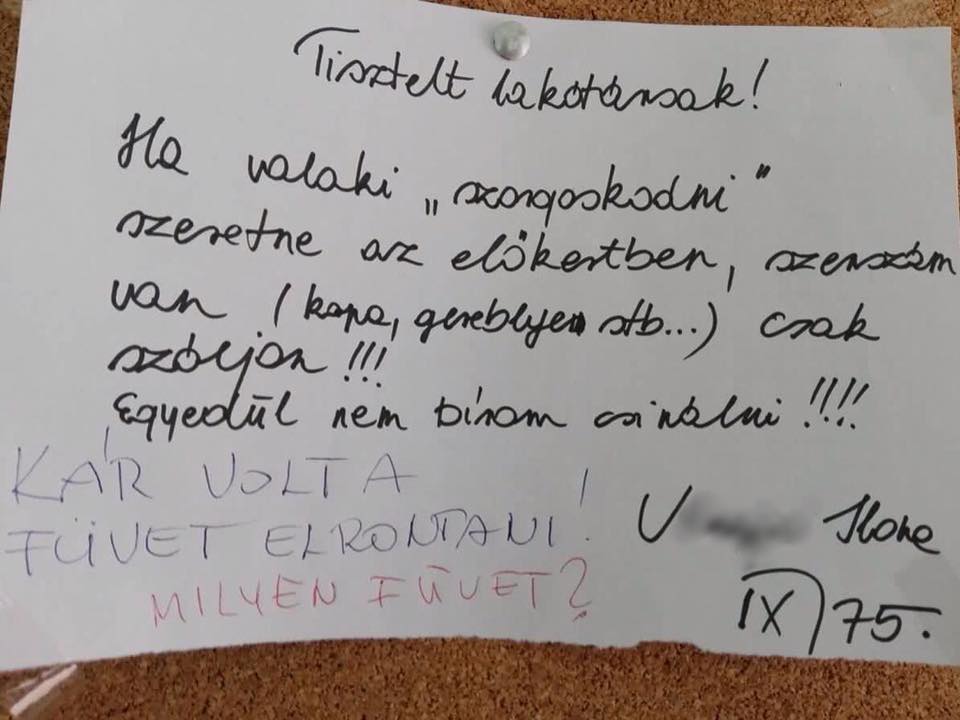 Tisztelt lakótársak!
Ha valaki „szorgoskodni"
szeretne az előkertben, szerszám
van (kapa, gereblye stb...) csak
szóljon!!!
Egyedül nem birom csinálni!!!!
KÁR VOLT A
FÜVET ELRONTANI!
MILYEN FÜVET?
V Ilona
IX/75.